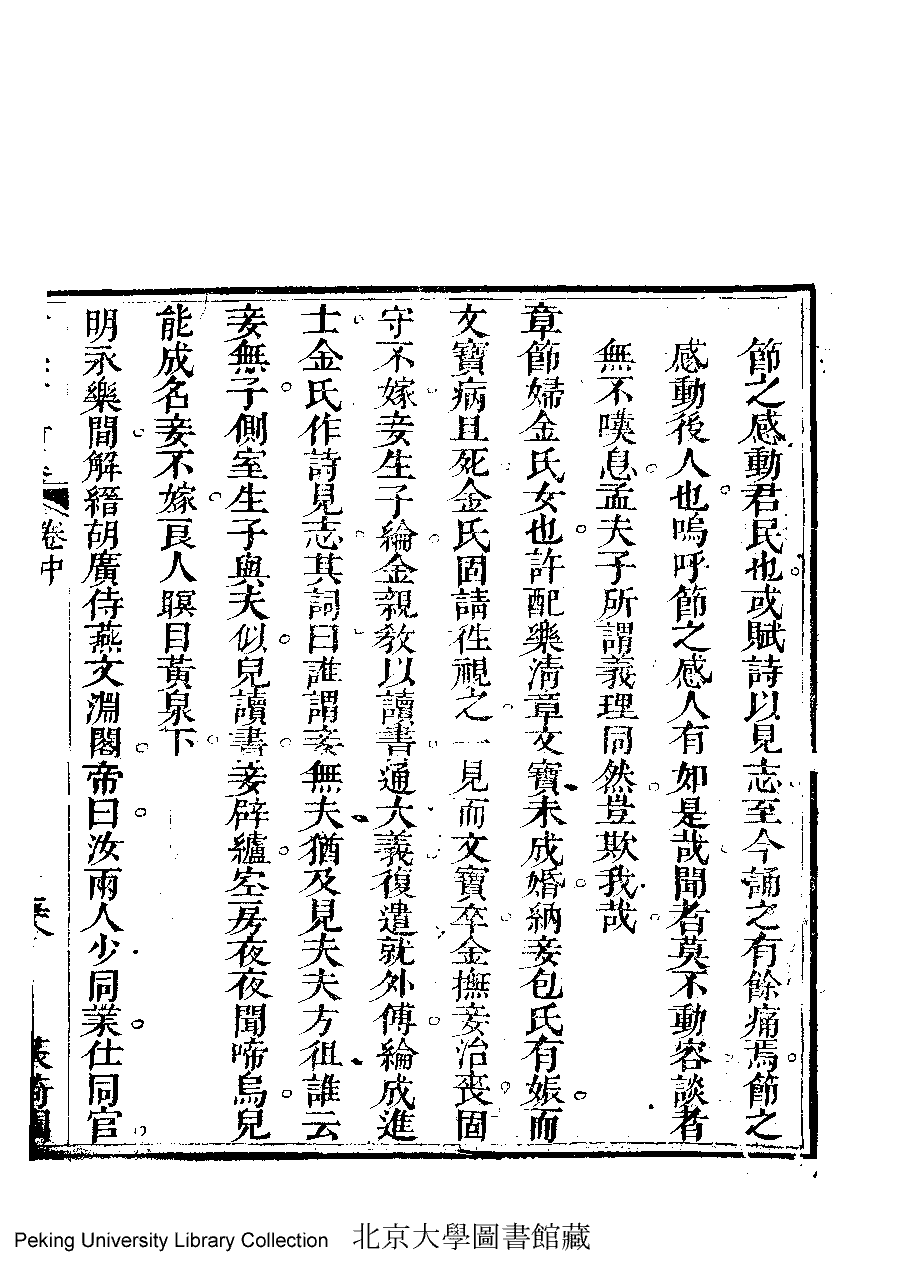 節之感動君民也或賦詩以見志至今誦之有餘痛焉節之
感動後人也嗚呼節之感人有如是哉聞者莫不動容談者
無不嘆息孟夫子所謂義理同然豈欺我哉
章節婦金氏女也許配樂清章文寶未成婚納妾包氏有娠而
文寶病且死金氏固請徃視之一見而文寶卒金撫妾治喪固
守不嫁妾生子綸金親敎以讀書通大義復遣就外傅綸成進
士金氏作詩見志其詞曰誰謂妾無夫猶及見夫夫方徂誰云
妾無子側室生子與夫似兒讀書妾辟纑空房夜夜聞啼烏兒
能成名妾不嫁良人瞑目黃泉下
明永樂間解縉胡廣侍燕文淵閣帝曰汝兩人少同業仕同官
卷中
Peking University Library Collection 北京大學圖書館藏